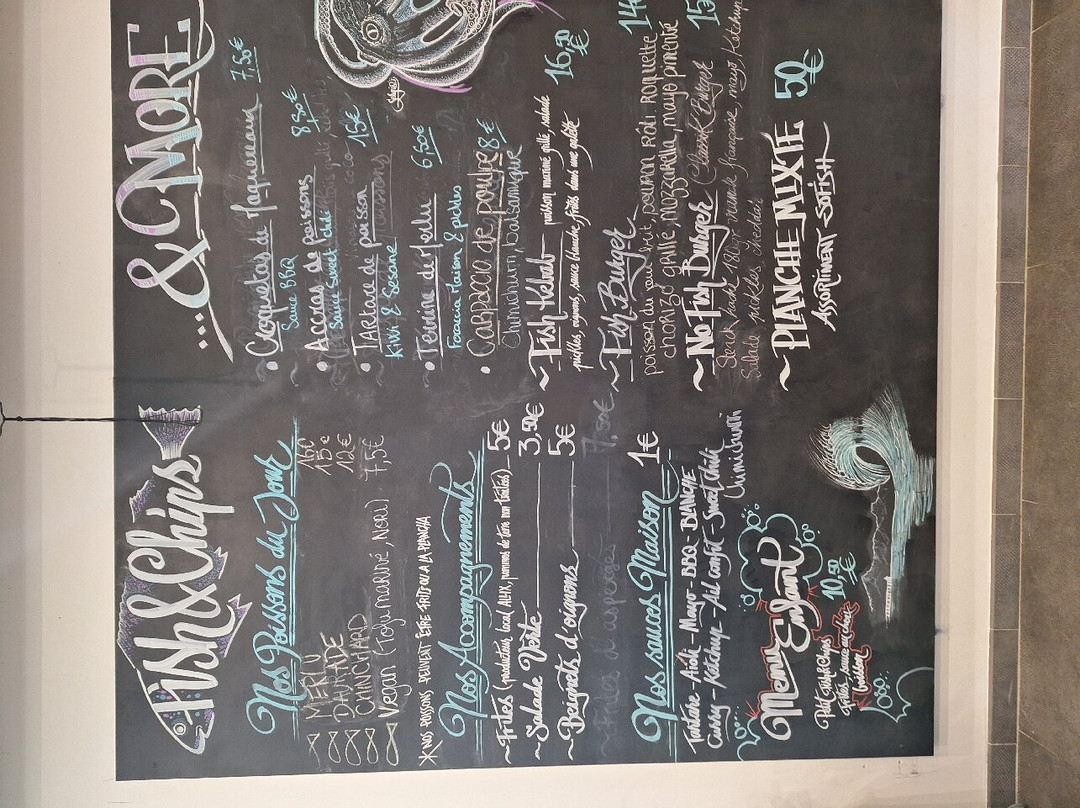 Fish & Chips
Nos Poissons du Jour
MERLU 16€
DAURADE 15€
CHINCHARD 12€
Vegan (Tofu mariné, Nori) 7,5€
* NOS POISSONS PEUVENT ÊTRE FRITS OU A LA PLANCHA
Nos Accompagnements
~ Frites (producteur local ALEX, pommes de terre non traitées) 5€
~ Salade Verte 3,50€
~ Beignets d'oignons 5€
~ Frites d'asperges 7,50€
Nos sauces Maison 1€
Tartare - Aïoli - Mayo - BBQ - BLANCHE
Curry - Ketchup - Ail confit - Sweet chili
Chimichurri
Menu Enfant
Petit Fish&Chips
Frites - sauce au choix
10,50€
...& MORE
• Croquetas de Maquereaux 7,50€
Sauce BBQ
• Accras de poissons 8,50€
Sauce Sweet chili
• Tartare de poisson 15€
Kiwi & Sésame
• Terrine de Merlu 6,50€
Focaccia Maison & pickles
• Carpaccio de poulpe 8€
Chimichurri, balsamique
~ Fish Kebab poisson mariné grillé, salade 16,50€
oignons, sauce blanche, frites dans une galette
~ Fish Burger
chorizo grillé, mozzarella, mayo pimenté
~ No Fish Burger
Steack haché 180gr viande française, mayo, ketchup
Salade pickles cheddar
~ PLANCHE MIXTE 50€
ASSORTIMENT